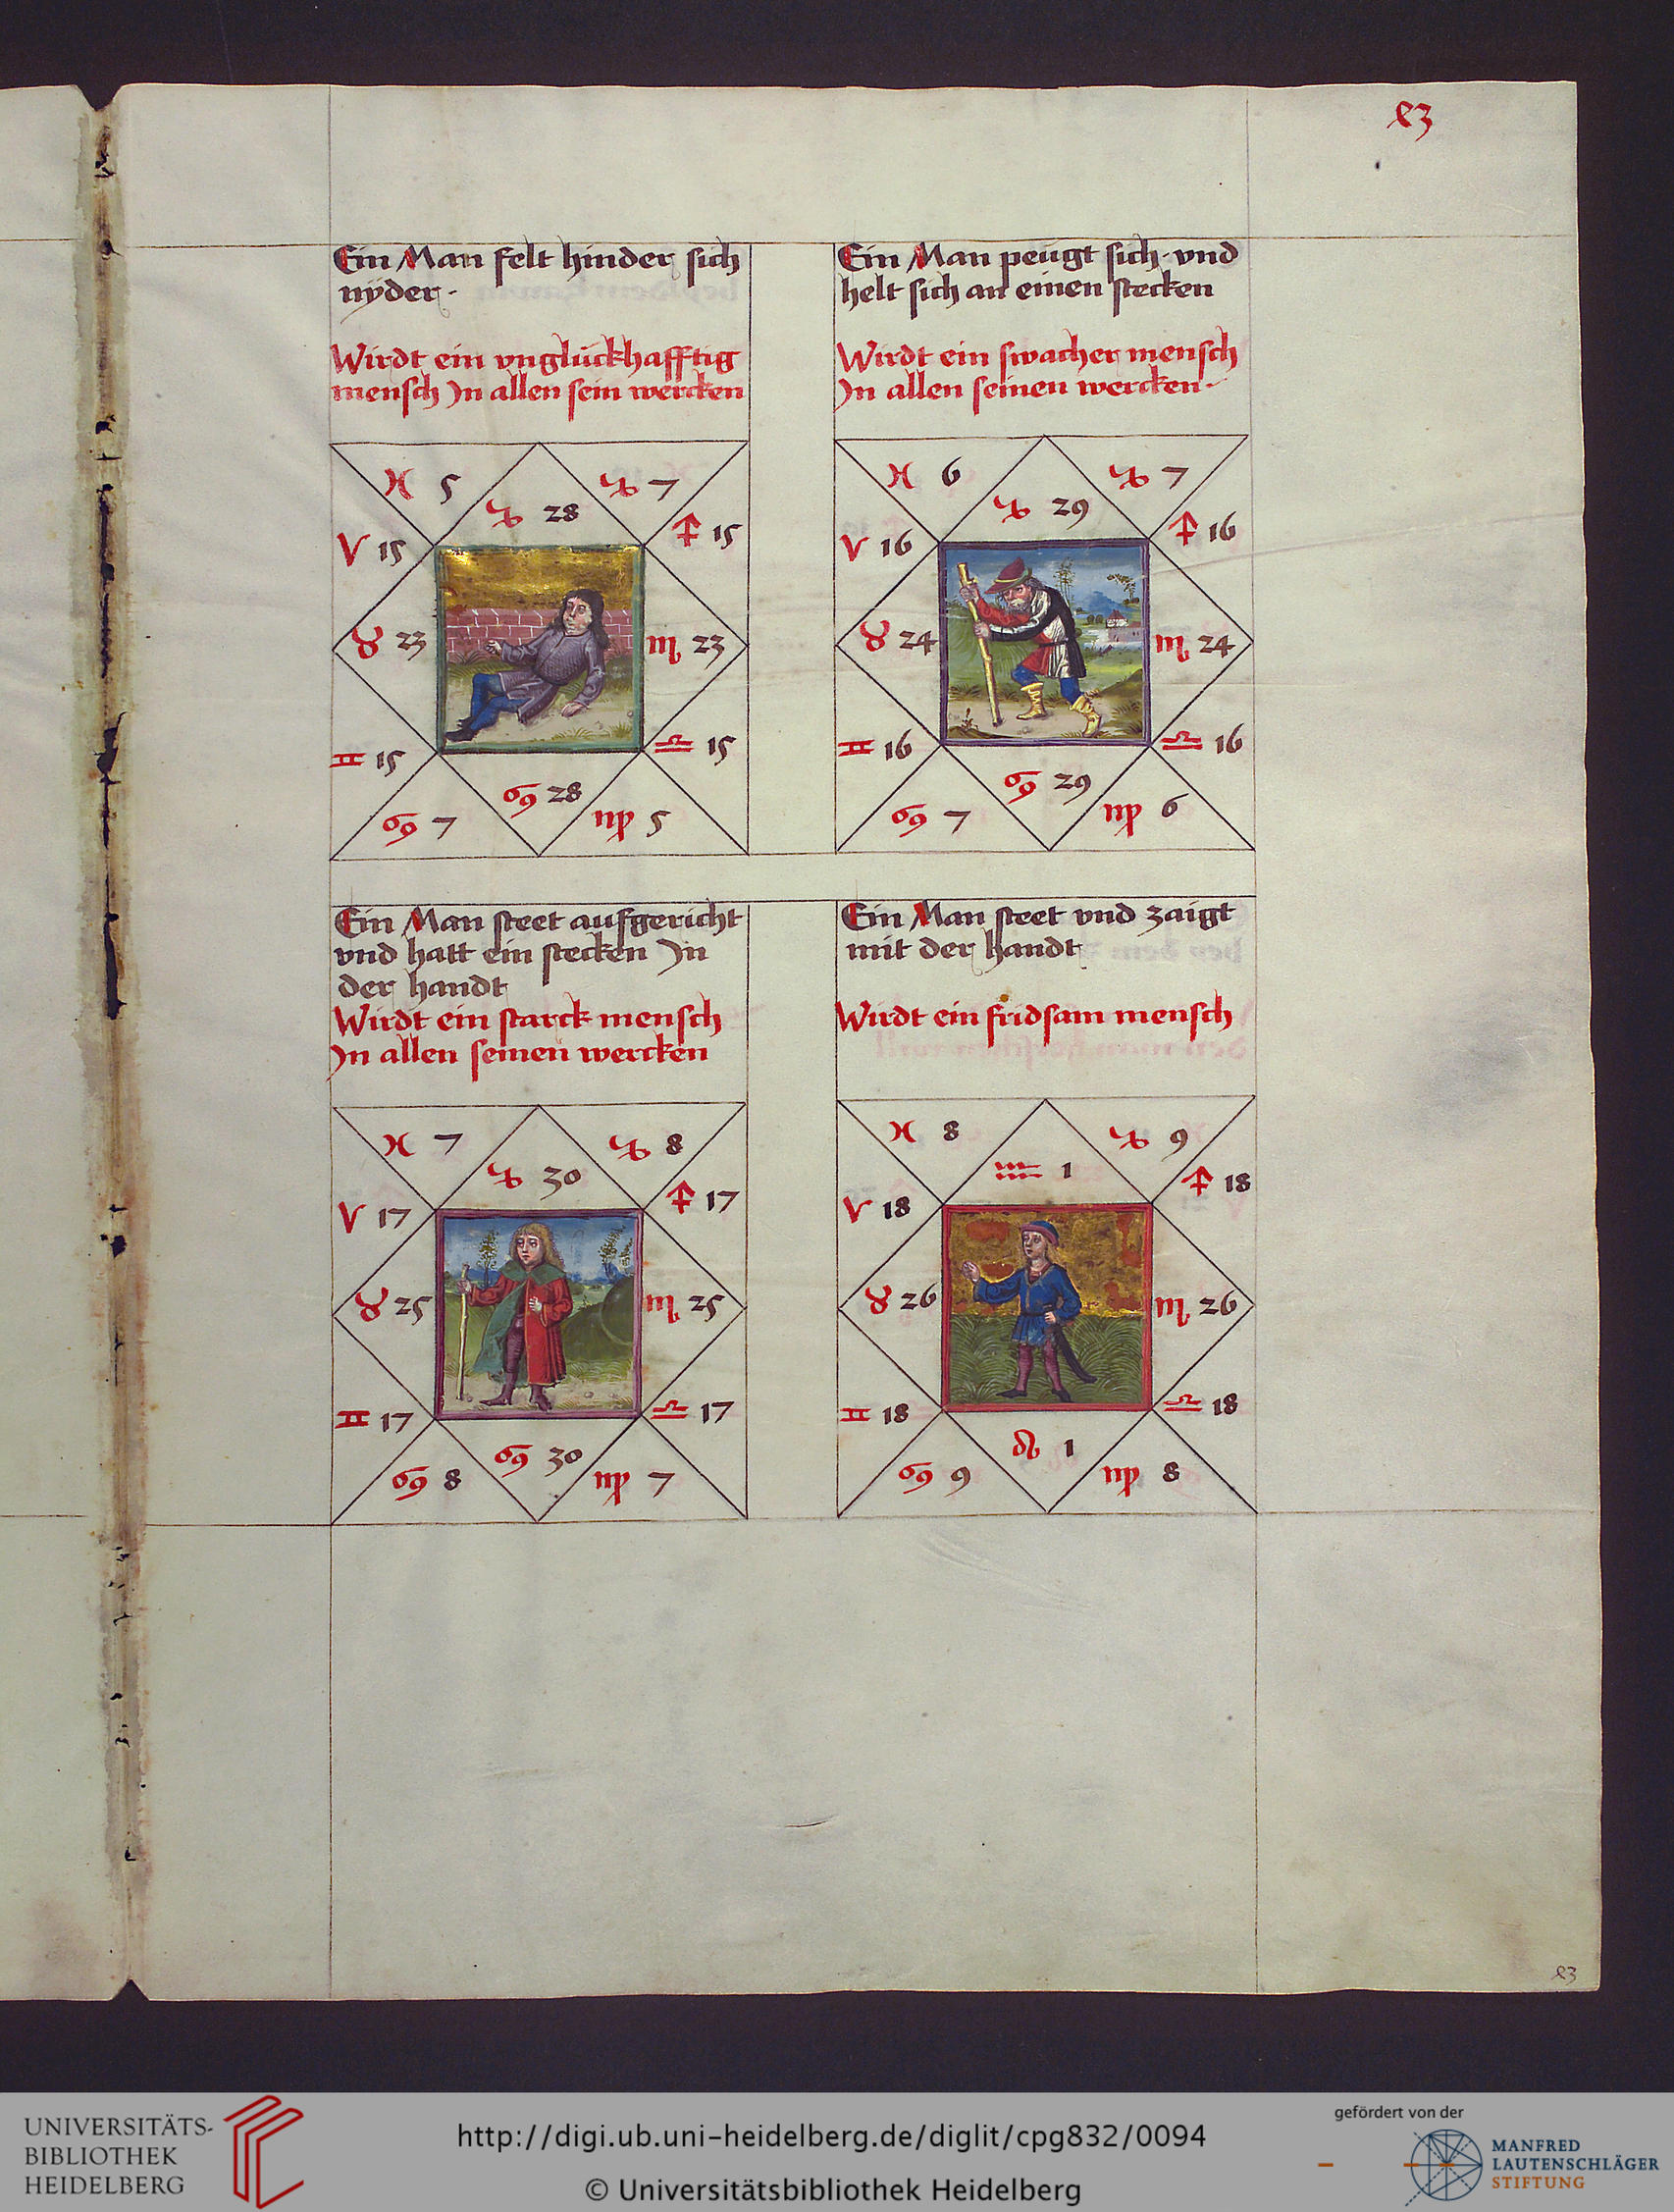 83
Ein Man felt hinder sich
nÿder.
Wirdt ein vngluckhafftig
mensch In allen sein wercken
♓ 5
♑ 28
♑ 7
♈ 15
♐ 15
♉ 23
♏ 23
♊ 15
♎ 15
♋ 7
♋ 28
♍ 5
Ein Man peugt sich. vnd
helt sich an einen stecken
Wirdt ein swacher mensch
In allen seinen wercken.
♓ 6
♑ 29
♑ 7
♈ 16
♐ 16
♉ 24
♏ 24
♊ 16
♎ 16
♋ 7
♋ 29
♍ 6
Ein Man steet aufgericht
vnd hatt ein stecken In
der handt
Wirdt ein starck mensch
In allen seinen wercken
♓ 7
♑ 30
♑ 8
♈ 17
♐ 17
♉ 25
♏ 25
♊ 17
♎ 17
♋ 8
♋ 30
♍ 7
Ein Man steet vnd zaigt
mit der handt
Wirdt ein fridsam mensch
♓ 8
♒ 1
♑ 9
♈ 18
♐ 18
♉ 26
♏ 26
♊ 18
♎ 18
♋ 9
♌ 1
♍ 8
83
UNIVERSITÄTS-
BIBLIOTHEK
HEIDELBERG
http://digi.ub.uni-heidelberg.de/diglit/cpg832/0094
© Universitätsbibliothek Heidelberg
gefördert von der
MANFRED
LAUTENSCHLÄGER
STIFTUNG